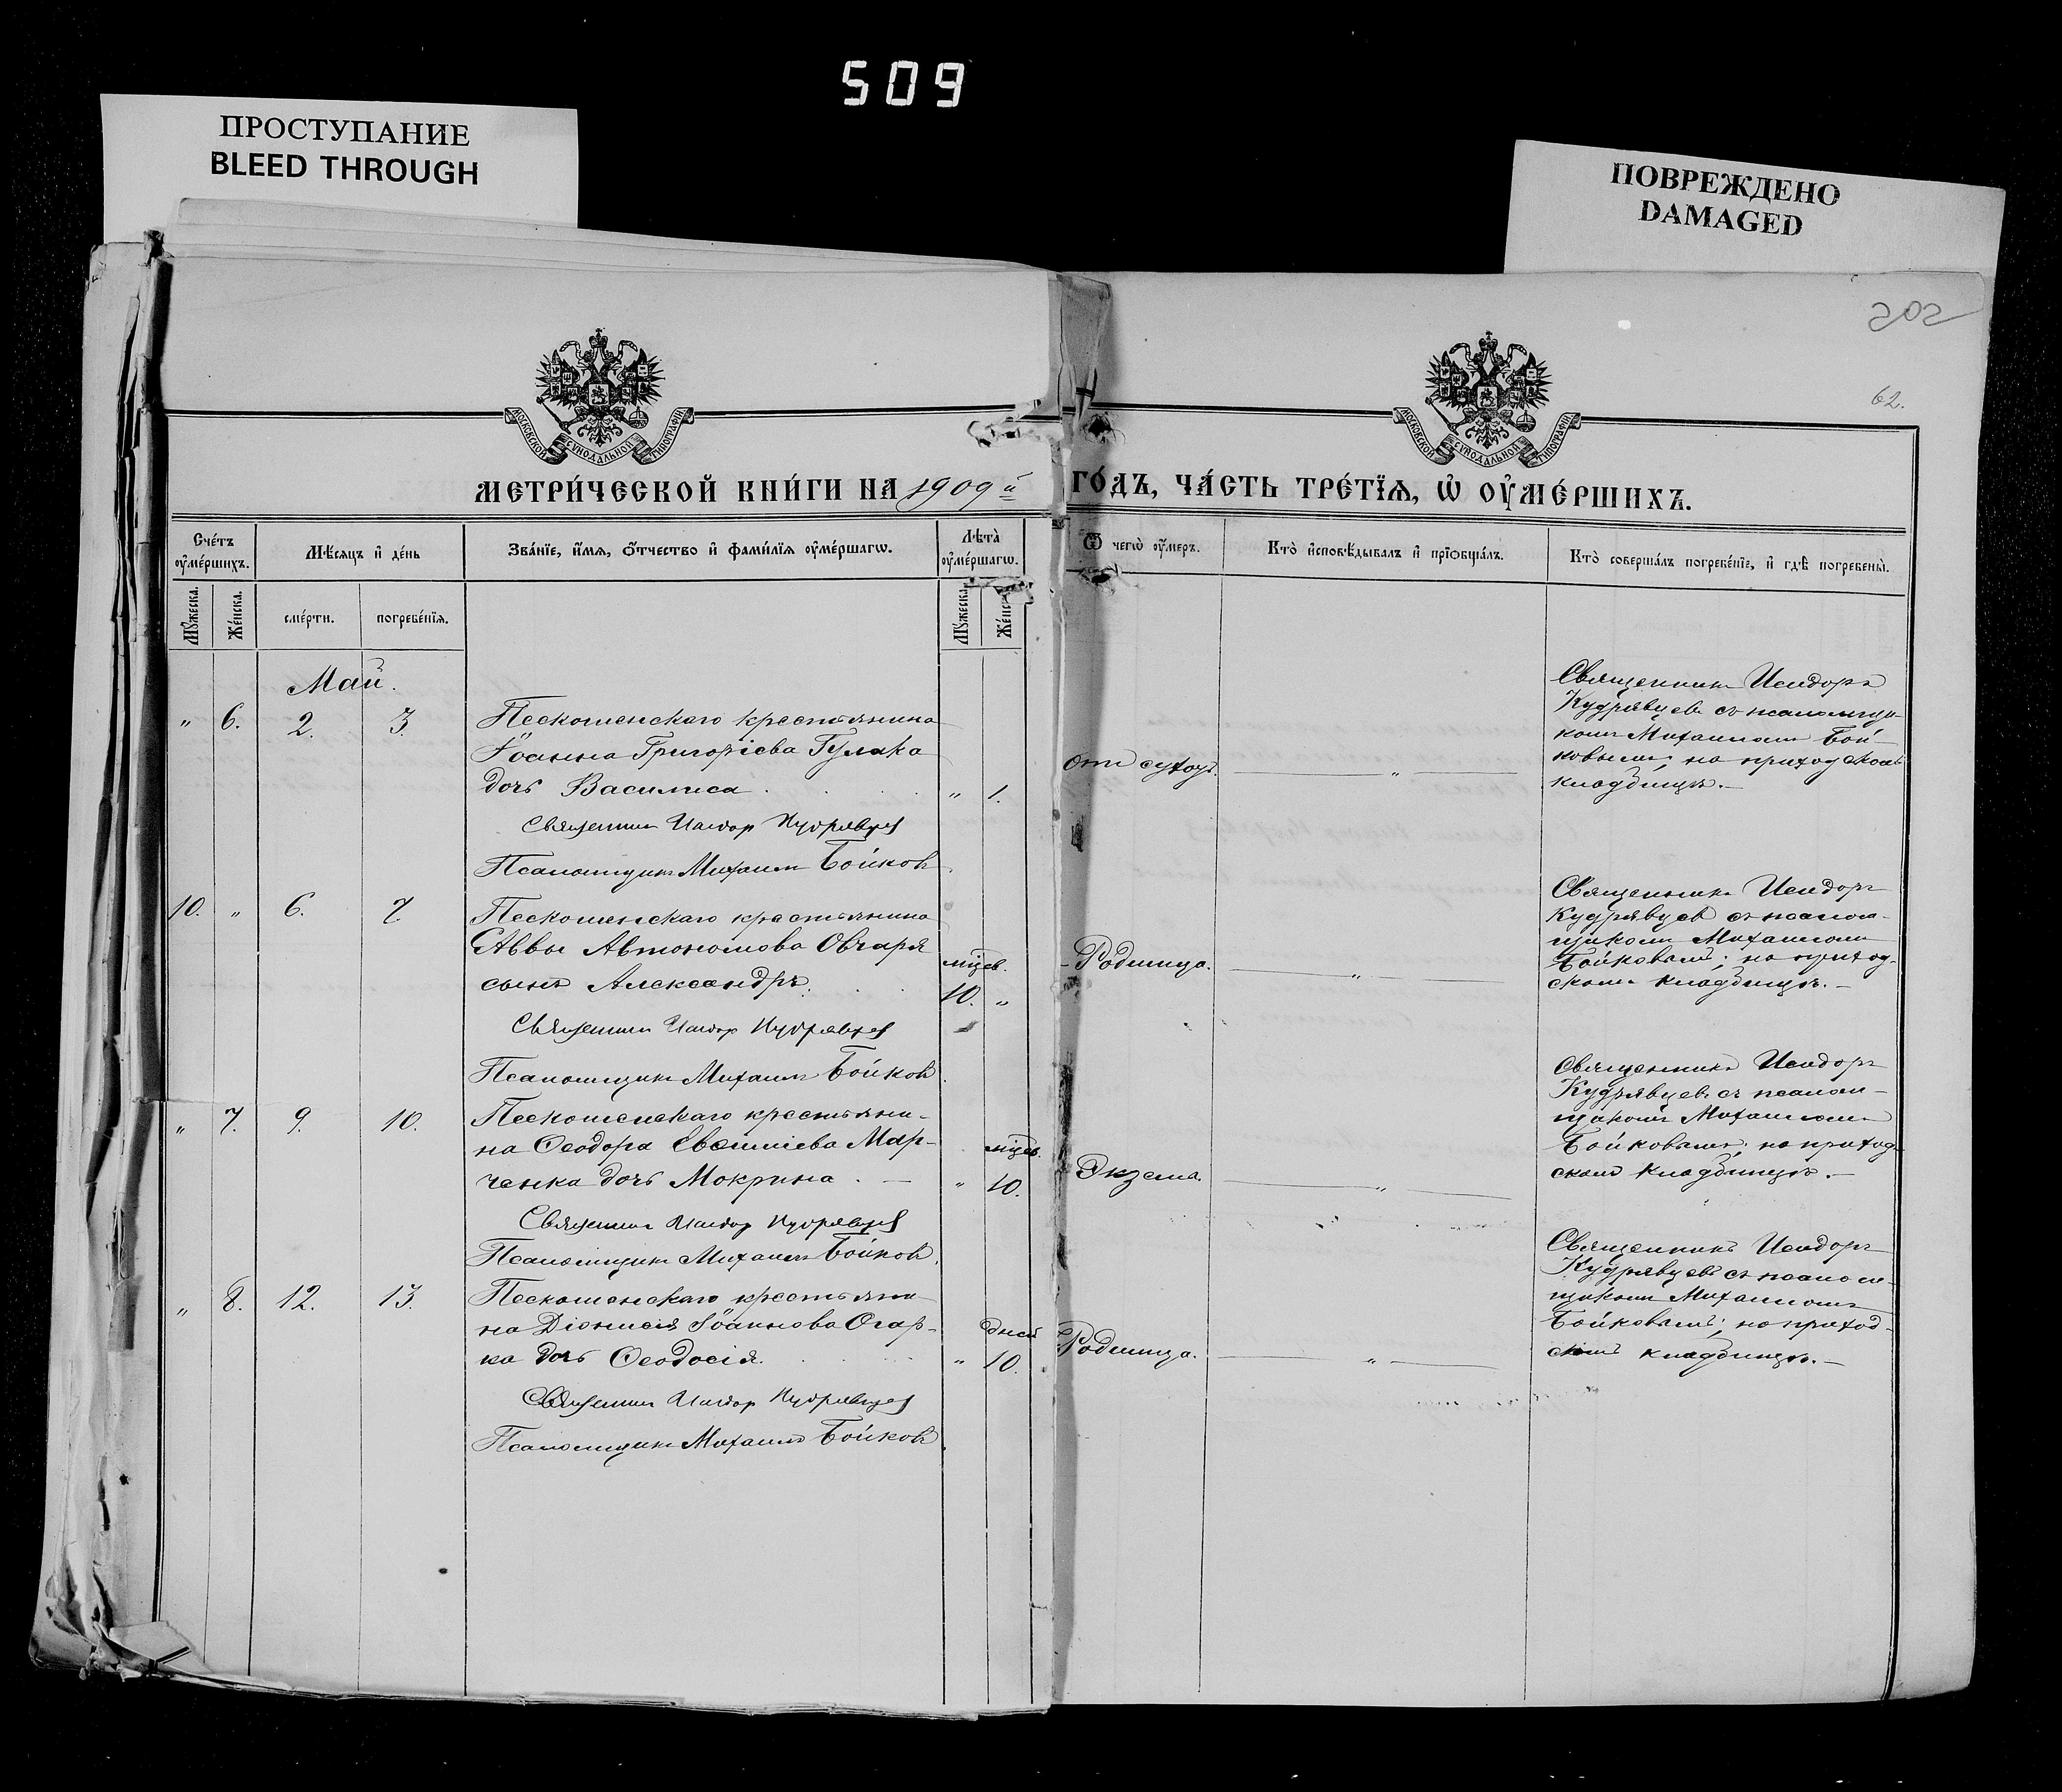 509
ПРОСТУПАНИЕ
BLEED THROUGH
ПОВРЕЖДЕНО
DAMAGED
202
62.
МОСКОВСКОЙ СѴНОДАЛЬНОЙ ТИПОГРАФІИ
МОСКОВСКОЙ СѴНОДАЛЬНОЙ ТИПОГРАФІИ
МЕТРИ́ЧЕСКОЙ КНИ́ГИ НА 1909й ГО́ДЪ, ЧА́СТЬ ТРЕ́ТЇѦ, Ѡ҆ ОУ҆МЕ́РШИХЪ.
Сче́тъ оу҆ме́ршихъ.
Мѣ́сѧцъ и҆ де́нь
Зва́нїе, и҆́мѧ, ѻ҆́тчество и҆ фамилїѧ оу҆ме́ршагѡ.
Лѣ́та оу҆ме́ршагѡ.
Ѿ чегѡ̀ оу҆́меръ.
Кто̀ и҆сповѣ́дывалъ и҆ прїѡбща́лъ.
Кто̀ соверша́лъ погребе́нїе, и҆ гдѣ̀ погребены̀.
Мꙋ́жеска.
Же́нска.
сме́рти.
погребе́нїѧ.
Мꙋ́жеска.
Же́нск
Май.
" 6. 2. 3.
Пескошенскаго крестьянина
Іоанна Григоріева Гулака
дочь Василиса " 1.
Священник Исидор Кудрявцев
Псаломщик Михаил Бойков
От сухот. "
Священникъ Исидоръ
Кудрявцевъ съ псаломщи-
комъ Михаиломъ Бой-
ковымъ; на приходскомъ
кладбищѣ.—
10. " 6. 7.
Пескошенскаго крестьянина
Саввы Автономова Овчаря
сынъ Александръ.
мцев.
10. "
Священник Исидор Кудрявцев
Псаломщик Михаил Бойков
Родимца. "
Священникъ Исидоръ
Кудрявцевъ съ псалом-
щикомъ Михаиломъ
Бойковымъ; на приход-
скомъ кладбищѣ.—
" 7. 9. 10.
Пескошенскаго крестьяни-
на Ѳеодора Евѳиміева Мар-
ченка дочь Мокрина . —
мцев.
" 10.
Священник Исидор Кудрявцев
Псаломщик Михаил Бойков.
Экзема. "
Священникъ Исидоръ
Кудрявцевъ съ псалом-
щикомъ Михаиломъ
Бойковымъ; на приход-
скомъ кладбищѣ.—
" 8. 12. 13.
Пескошенскаго крестьяни-
на Діонисія Іоаннова Огар-
ка дочь Ѳеодосія.
дней
" 10.
Священник Исидор Кудрявцев
Псаломщик Михаил Бойков.
Родимца. "
Священникъ Исидоръ
Кудрявцевъ съ псалом-
щикомъ Михаиломъ
Бойковымъ; на приход-
скомъ кладбищѣ.—